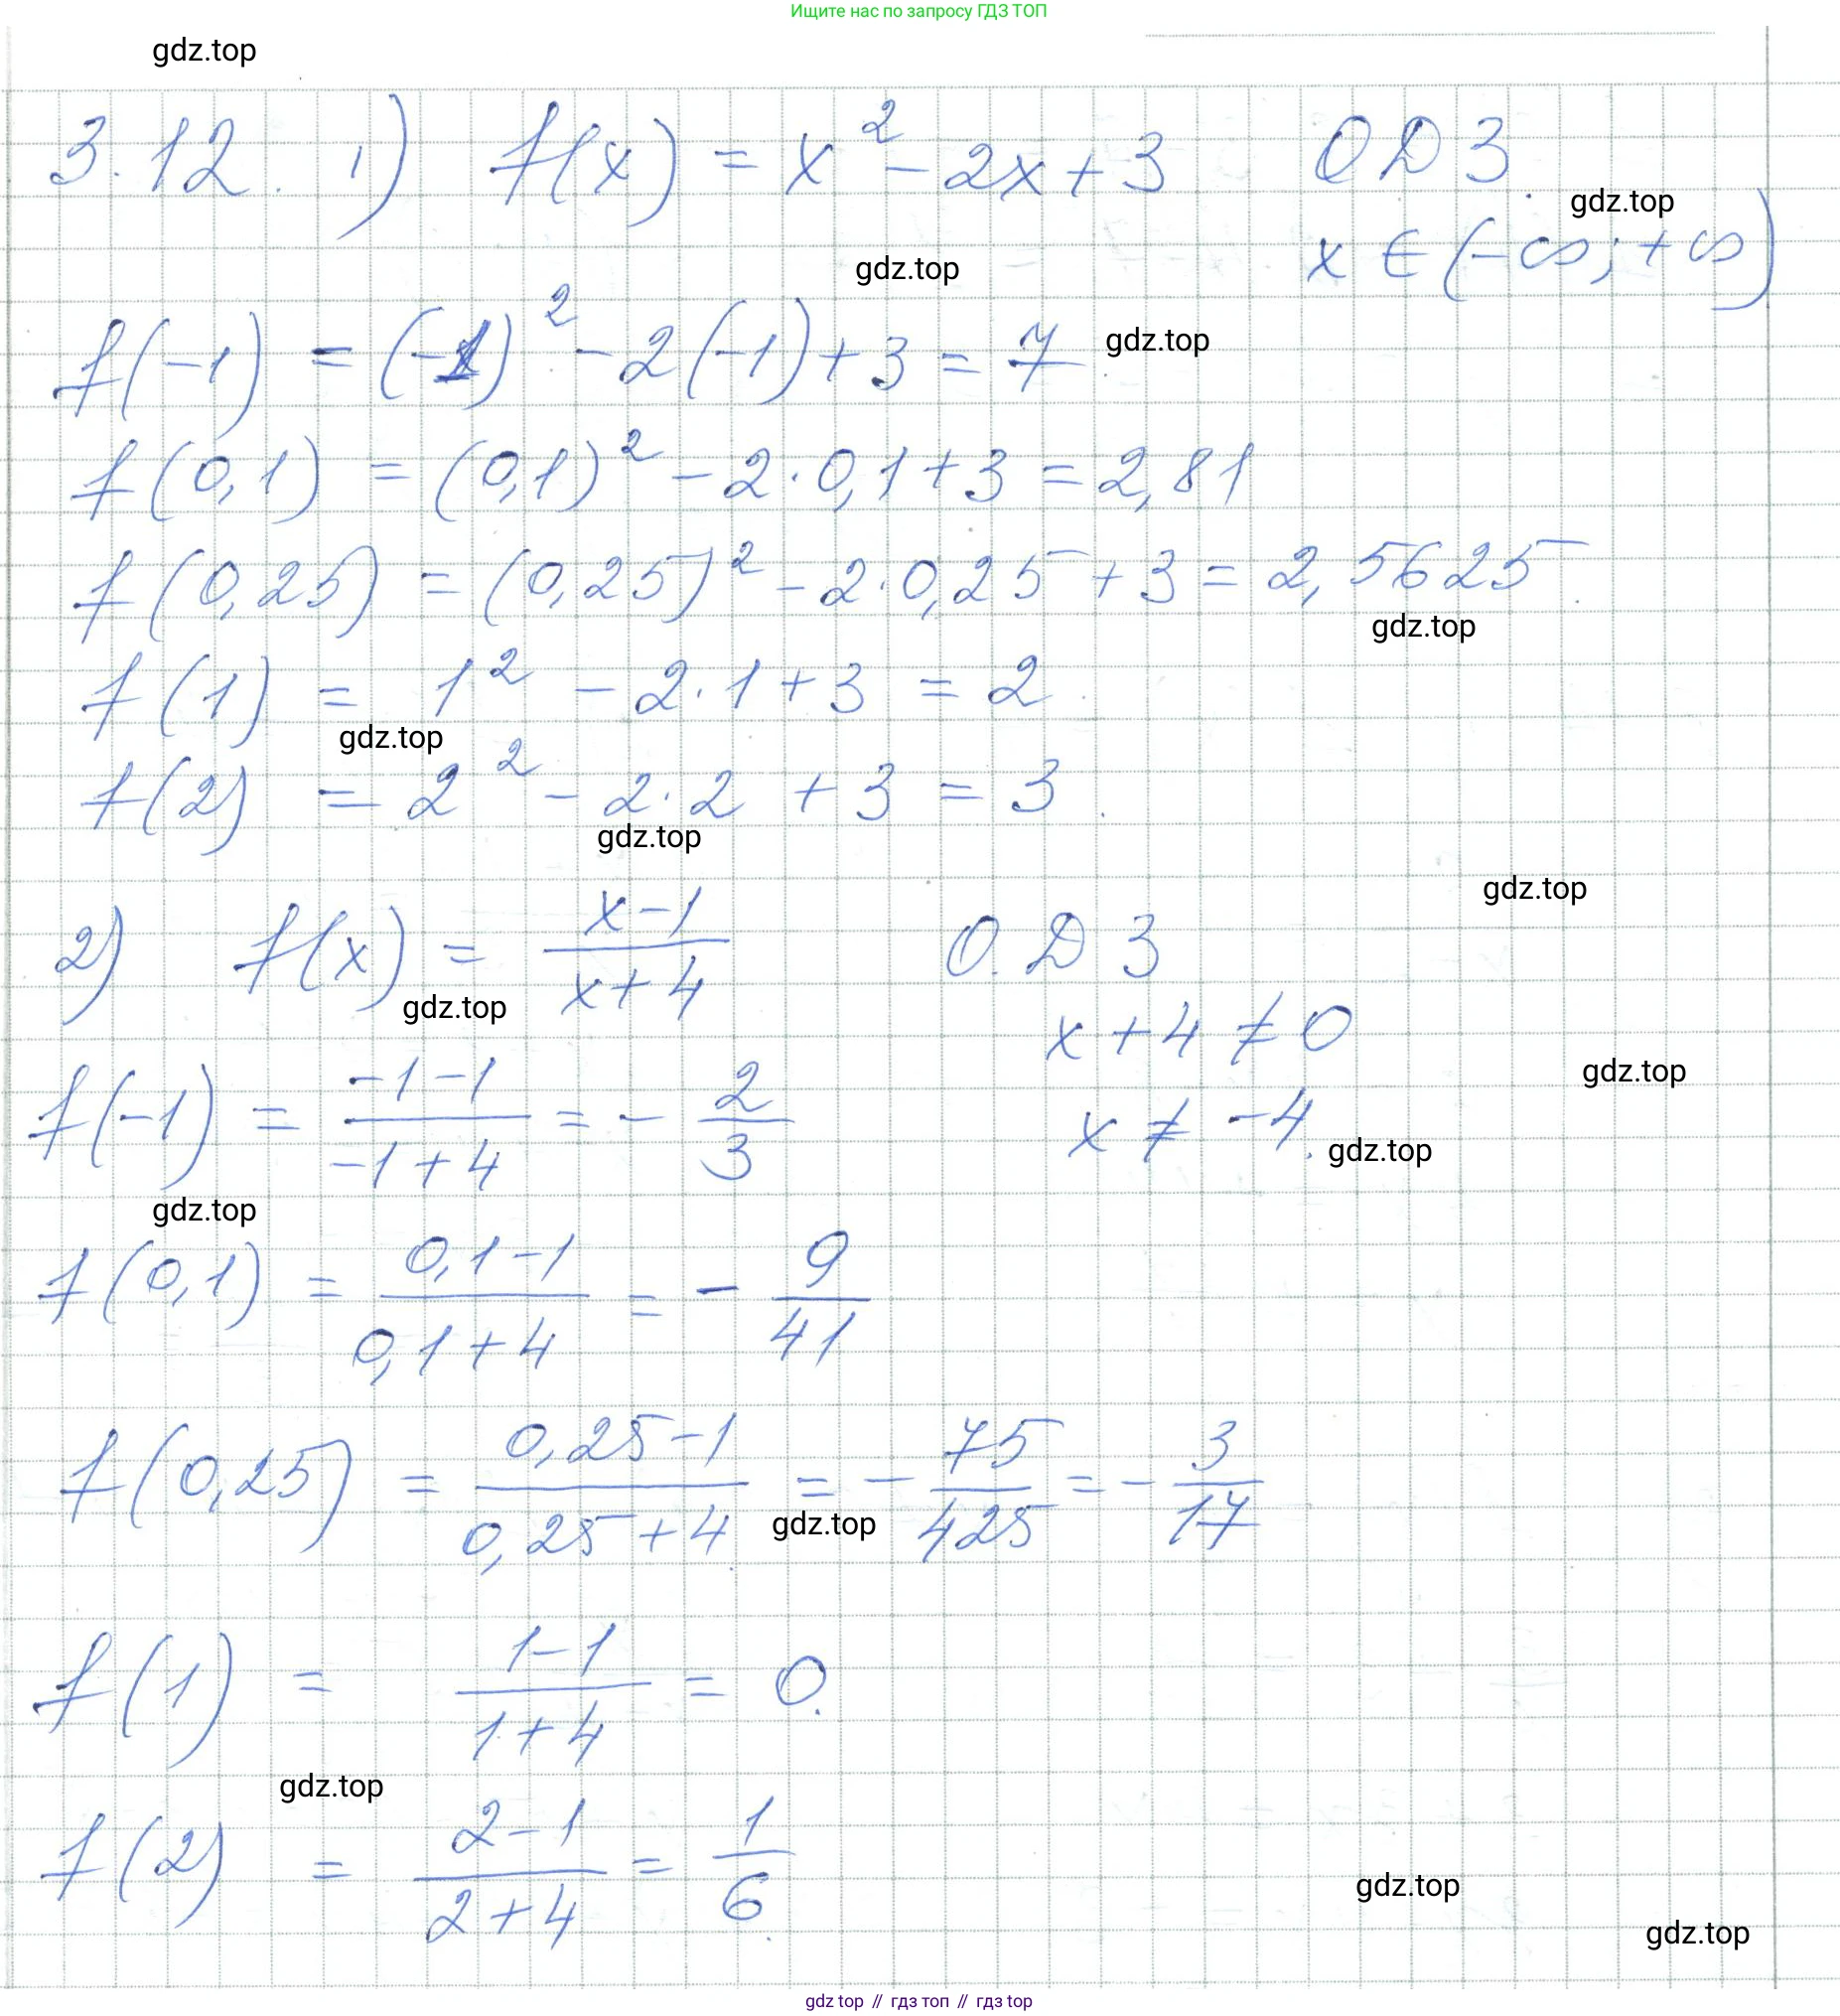 Ищите нас по запросу ГДЗ ТОП
gdz.top
3.12. 1) f(x) = x² - 2x + 3 ОДЗ.
gdz.top
x ∈ (-∞; +∞)
gdz.top
f(-1) = (-1)² - 2(-1) + 3 = 7
gdz.top
f(0,1) = (0,1)² - 2·0,1 + 3 = 2,81
f(0,25) = (0,25)² - 2·0,25 + 3 = 2,5625.
gdz.top
f(1) = 1² - 2·1 + 3 = 2.
gdz.top
f(2) = 2² - 2·2 + 3 = 3.
gdz.top
gdz.top
2) f(x) = (x-1)/(x+4) О.ДЗ
gdz.top
x + 4 ≠ 0
gdz.top
f(-1) = (-1-1)/(-1+4) = - 2/3 x ≠ -4.
gdz.top
gdz.top
f(0,1) = (0,1-1)/(0,1+4) = - 9/41
f(0,25) = (0,25-1)/(0,25+4) = - 75/425 = - 3/17
gdz.top
f(1) = (1-1)/(1+4) = 0.
gdz.top
f(2) = (2-1)/(2+4) = 1/6.
gdz.top
gdz.top
gdz top // гдз топ // гдз top